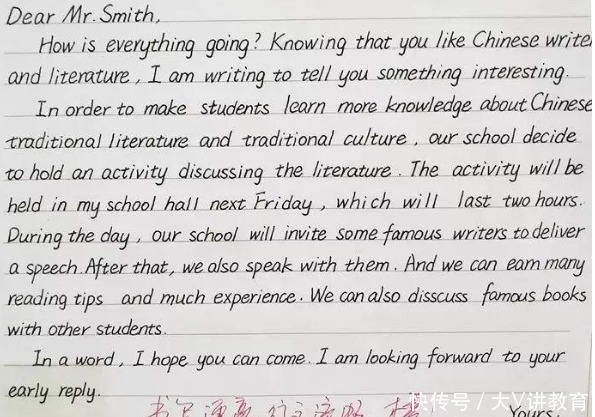 Dear Mr. Smith,
How is everything going? Knowing that you like Chinese write
and literature, I am writing to tell you something interesting.
In order to make students learn more knowledge about Chinese
traditional literature and traditional culture, our school decide
to hold an activity discussing the literature. The activity will be
held in my school hall next Friday, which will last two hours.
During the day, our school will invite some famous writers to deliver
a speech. After that, we also speak with them. And we can earn many
reading tips and much experience. We can also disscuss famous books
with other students.
In a word, I hope you can come. I am looking forward to your
early reply.
Yours,
快传号/大V讲教育